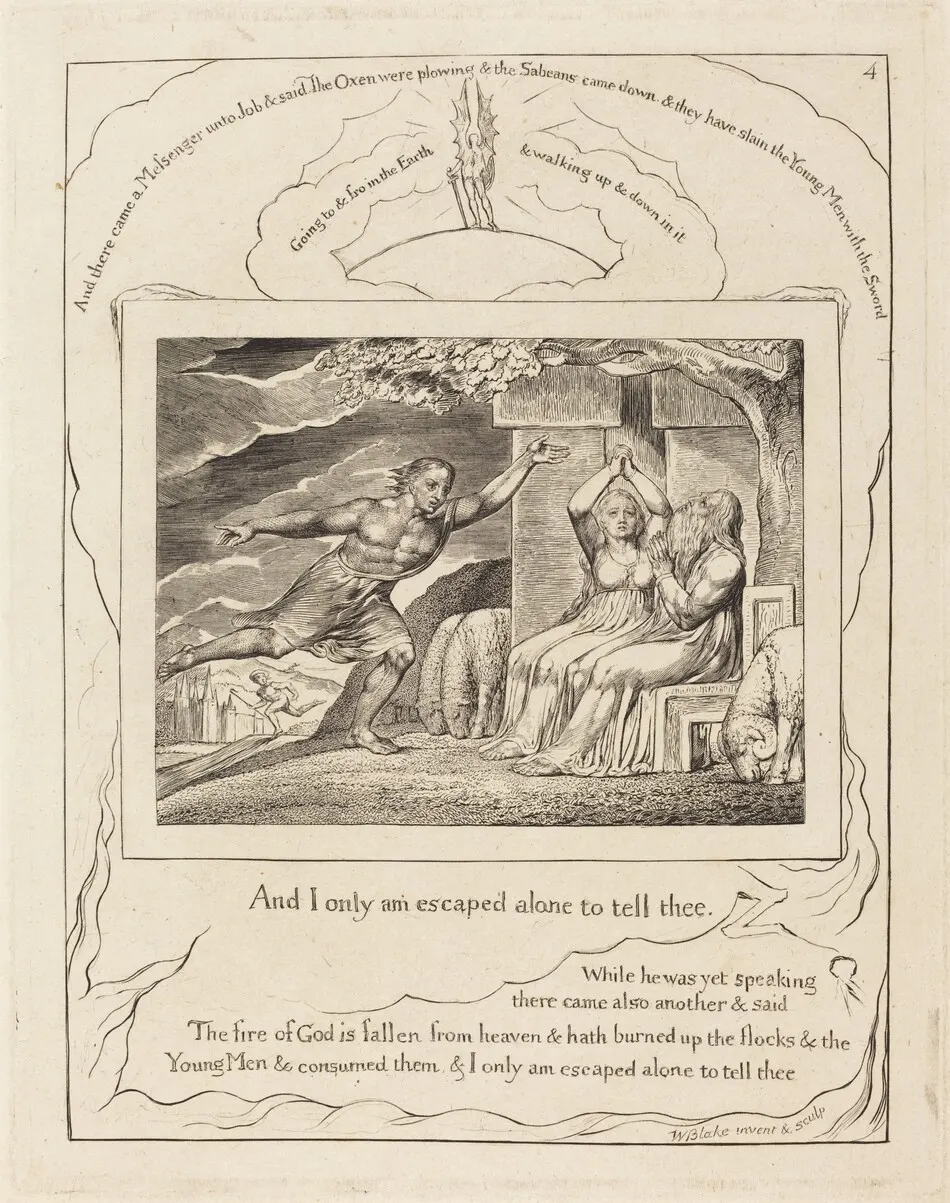 4
And there came a Meſsenger unto Job & said The Oxen were plowing & the Sabeans came down & they have slain the Young Men with the Sword
Going to & fro in the Earth
& walking up & down in it
And I only am escaped alone to tell thee.
While he was yet speaking
there came also another & said
The fire of God is fallen from heaven & hath burned up the flocks & the
Young Men & consumed them & I only am escaped alone to tell thee
WBlake invent & sculp